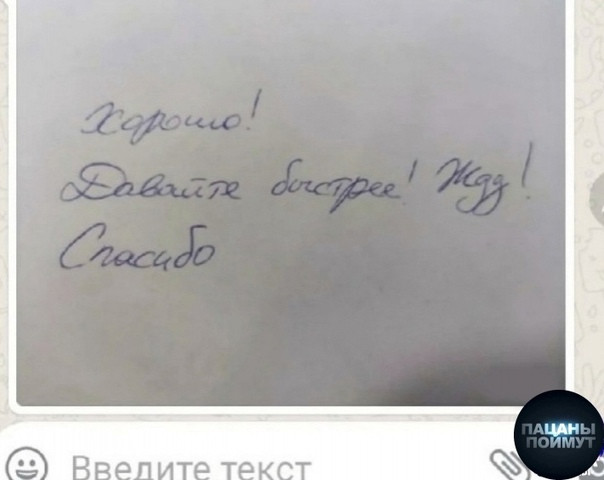 Хорошо!
Давайте быстрее! Жду!
Спасибо
Введите текст
ПАЦАНЫ
ПОЙМУТ